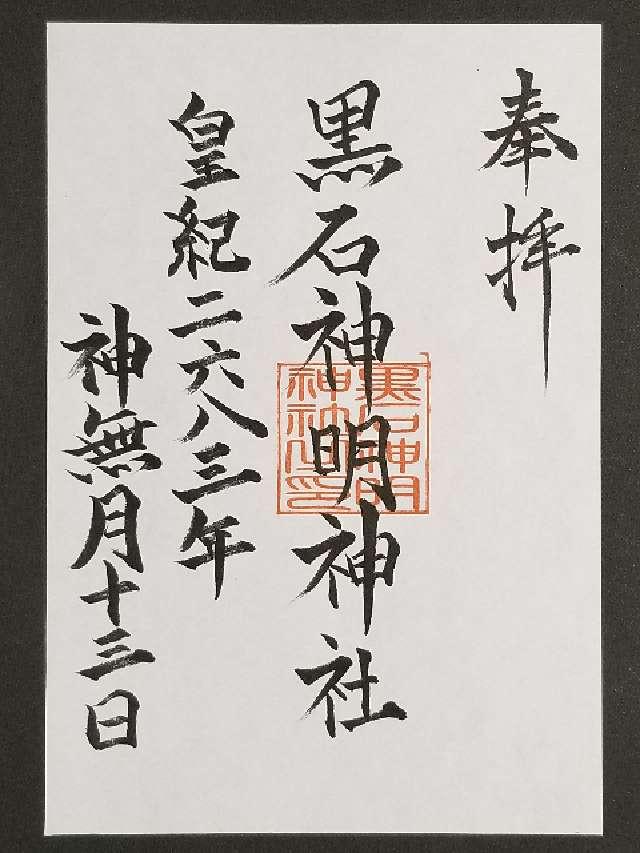 奉拝
黒石神明神社
皇紀二六八三年
神無月十三日
黒石神明
神社之印